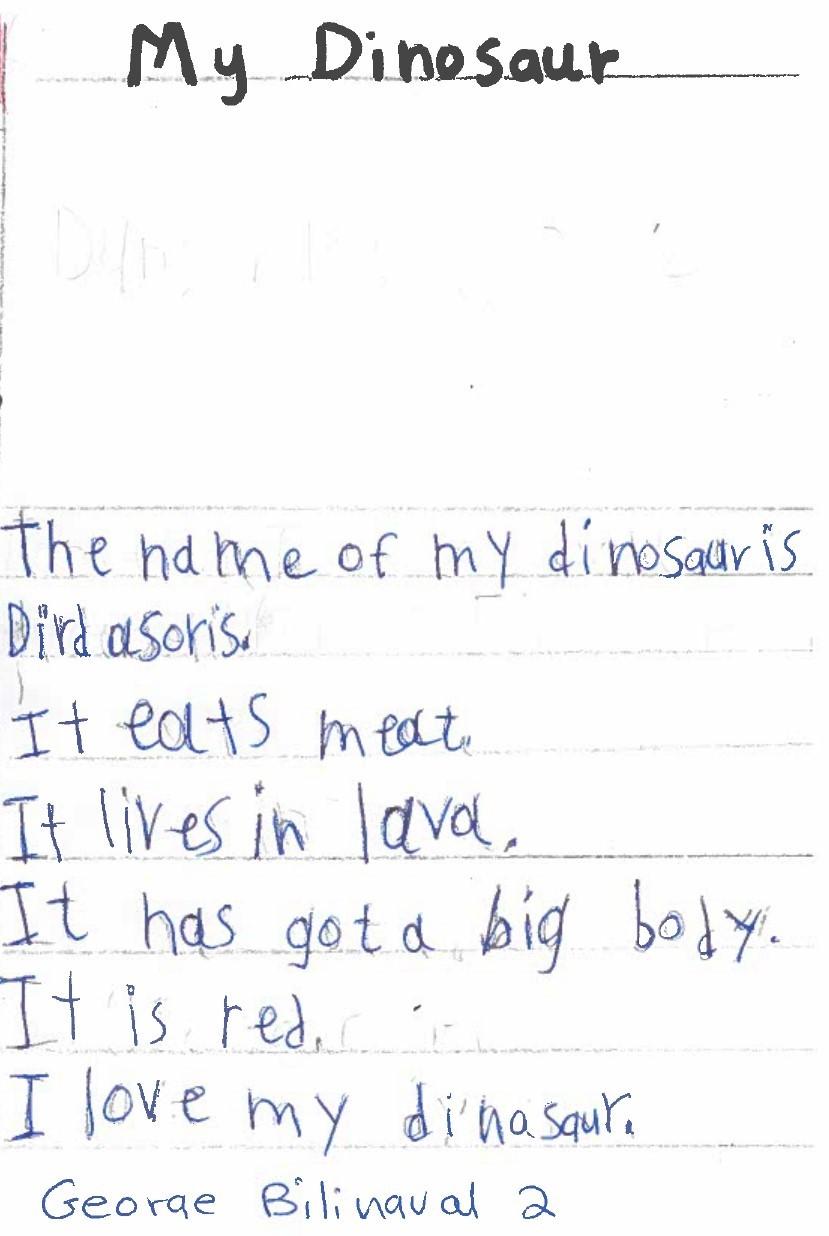 My Dinosaur
The name of my dinosaur is
Dirdasoris.
It eats meat.
It lives in lava.
It has got a big body.
It is red.
I love my dinasaur.
George Bilinaval 2